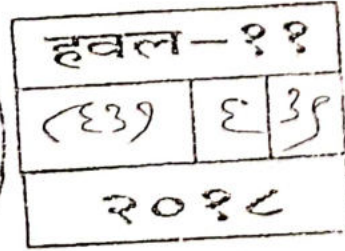 हवल - ११
८६३१ ६ ३९
२०१८